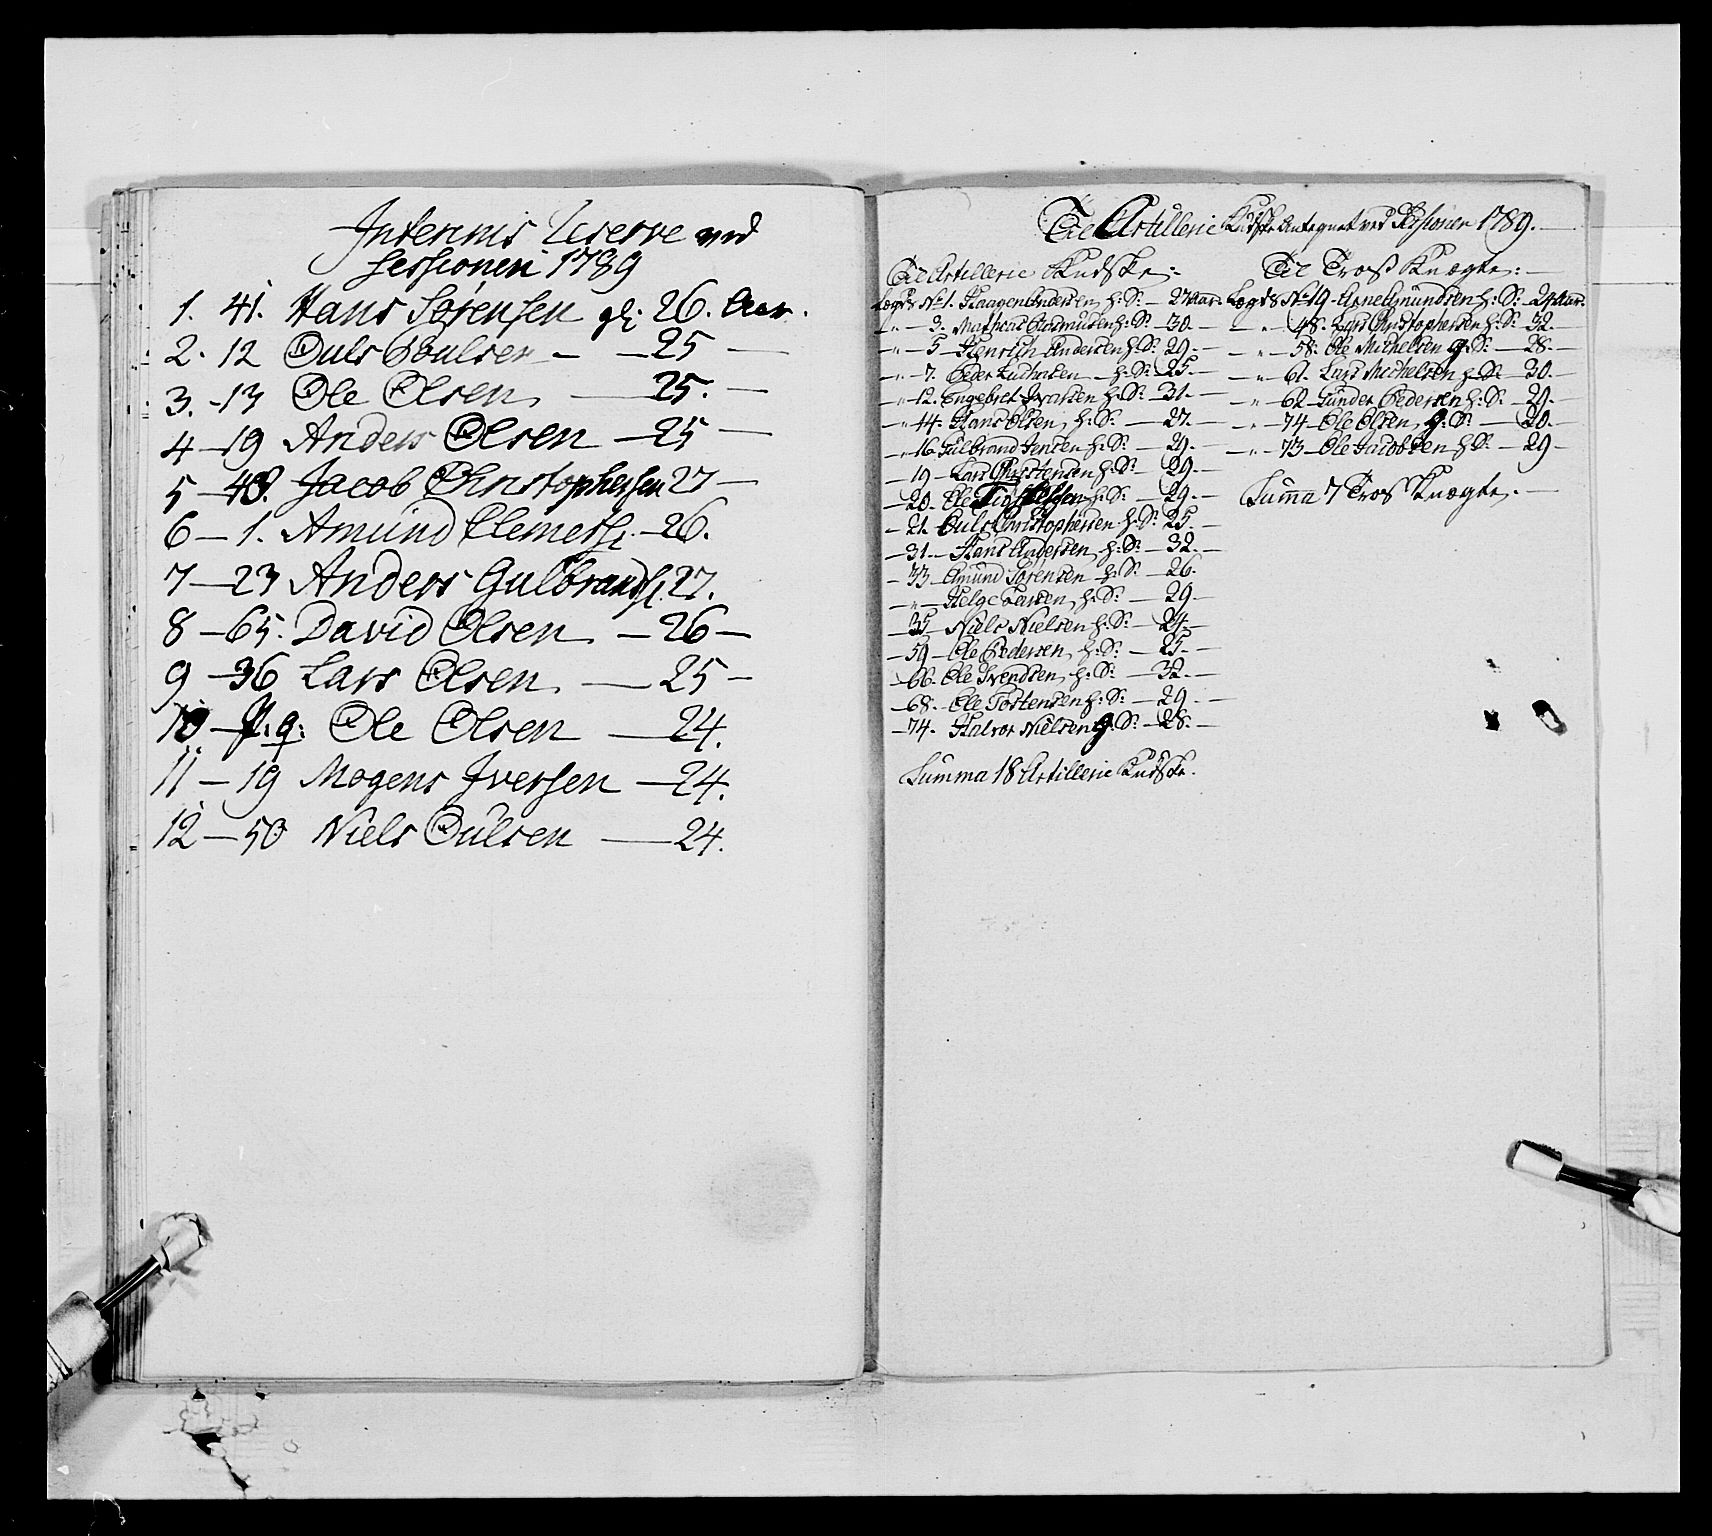 Interims Reserve ved
Sessionen 1789
1. 41. Hans Sørensen gl: 26. Aar.
2. 12 Ouls Poulsen — — 25 —
3. - 13 Ole Olsen — 25. —
4 — 19 Anders Olsen — 25 —
5 — 48. Jacob Christophersen 27 —
6 — 1. Amund Clemets: — 26.
7 — 23 Anders Gulbrands: 27.
8 — 65. David Olsen — 26 —
9 — 36 Lars Olsen — 25 —
10 — Ole Olsen — 24.
11 — 19 Mogens Iversen — 24.
12 — 50 Niels Oulsen — 24.
Til Artillerie Kudske Antegnet ved Sessionen 1789.
Til Artillerie Kudske:
Lægds No 1. Haagen Andersen h: S: — 27 Aar.
— " — 3. Mathias Rasmusen h: S: — 30. —
— " — 5 — Henrich Andersen h: S: 29. —
— " — 7. Peder — h: S: 25. —
— " — 12. Engebret Ivarsen h: S: — 31. —
— " — 14. Hans Olsen h: S: — 27. —
— " — 16. Gulbrand Jensen h: S: — 29. —
— 19 — Lars Christensen h: S: — 29. —
— 20. Ole h: S: — 29. —
— 21. Ouls Christophersen h: S: 25. —
— 31. — Hans Andersen h: S: — 32. —
— 33 — Amund Sørensen h: S: — 26. —
— " — Helge Larsen h: S: — 29 —
— 35 — Niels Nielsen h: S: — 24. —
— 59 — Ole Pedersen h: S: — 25. —
— 66. Ole Svendsen h: S: — 32. —
— 68. Ole Tostensen h: S: — 29. —
— 74. Halvor Nielsen g: S: — 28. —
Summa 18 Artillerie Kudske.
Til Tross Knægte:
Lægds No 19 — Arne Amundsen h: S: — 24 Aar.
— " — 48. Lars Christophersen h: S: 32. —
— " — 58. Ole Michelsen g: S: — 28. —
— " — 61. Lars Michelsen h: S: — 30. —
— " — 62 Gunder Pedersen h: S: — 29. —
— " — 74 — Ole Olsen g: S: — 20. —
— " — 73 — Ole Jacobsen h: S: — 29 —
Summa 7 Tross Knægte. —